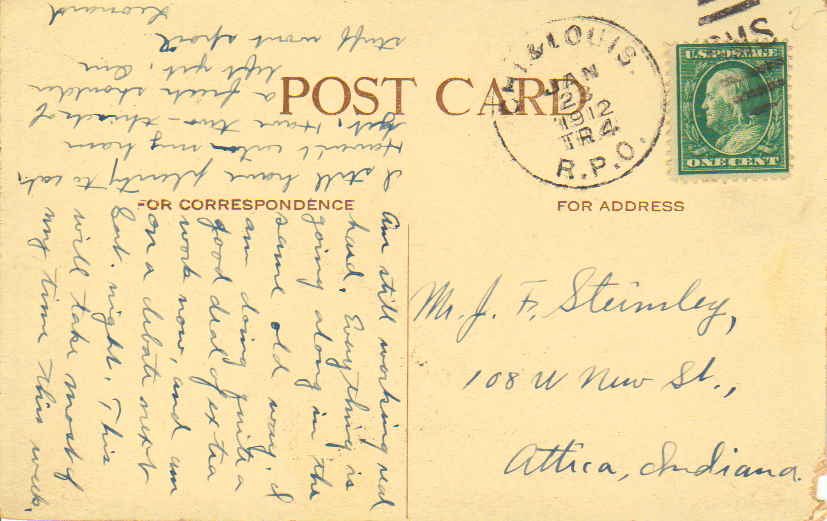 POST CARD
FOR CORRESPONDENCE
FOR ADDRESS
LOUIS.
JAN
1912
TR4
R.P.O.
U.S. POSTAGE
ONE CENT
Mr. J. F. Steimley,
108 W New St.,
Attica, Indiana.
Am still working real
hard. Everything is
going along in the
same old way. I
am doing quite a
good deal of extra
work now, and am
on a debate next
Sat. night. This
will take most of
my time this week.
I still have plenty to eat,
Haven't my ham
yet. Have two-thirds of
a fresh shoulder
left yet.
stuff wont spoil
Leonard